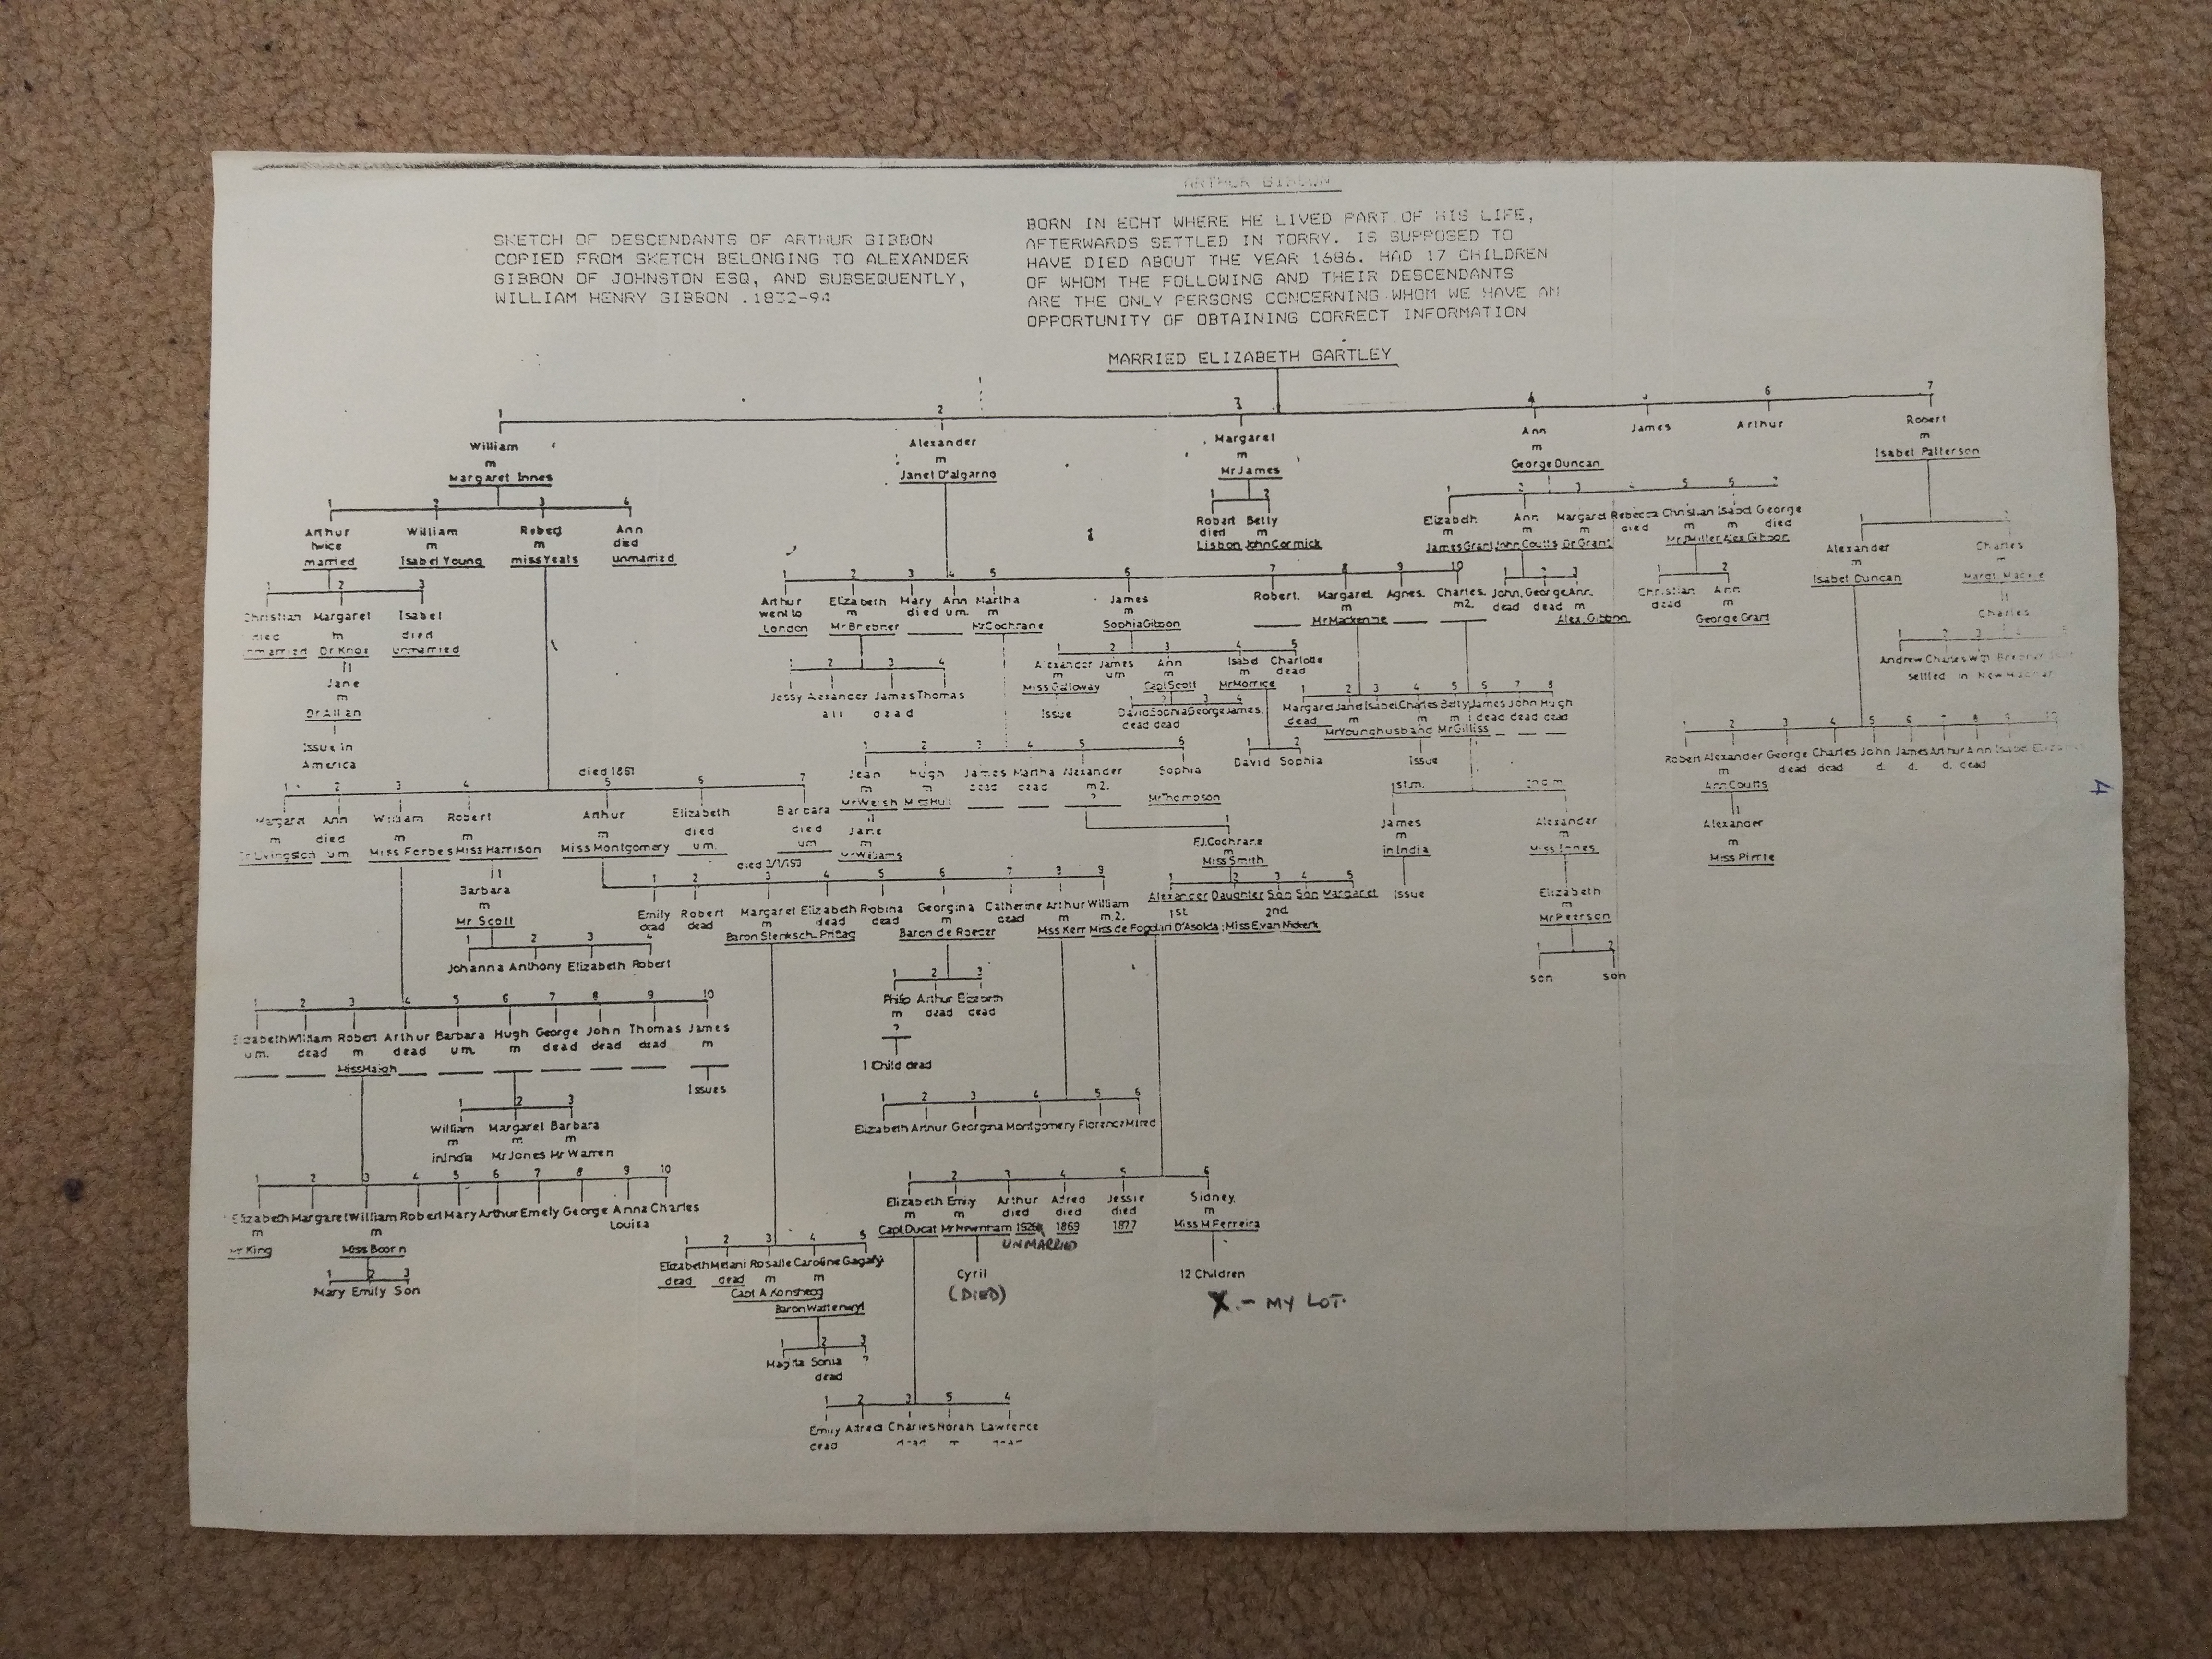 ARTHUR GIBBON
SKETCH OF DESCENDANTS OF ARTHUR GIBBON
COPIED FROM SKETCH BELONGING TO ALEXANDER
GIBBON OF JOHNSTON ESQ, AND SUBSEQUENTLY,
WILLIAM HENRY GIBBON .1832-94
BORN IN ECHT WHERE HE LIVED PART OF HIS LIFE,
AFTERWARDS SETTLED IN TORRY. IS SUPPOSED TO
HAVE DIED ABOUT THE YEAR 1686. HAD 17 CHILDREN
OF WHOM THE FOLLOWING AND THEIR DESCENDANTS
ARE THE ONLY PERSONS CONCERNING WHOM WE HAVE AN
OPPORTUNITY OF OBTAINING CORRECT INFORMATION
MARRIED ELIZABETH GARTLEY
1 2 3 4 6 7
William Alexander Margaret Ann James Arthur Robert
m m m m m
Margaret Innes Janet D'algarno Mr James George Duncan Isabel Patterson
1 2 3 4
Arthur William Robert Ann
twice m m died
married Isabel Young miss Yeats unmarried
1 2
Robert Betty
died m
Lisbon John Cormick
1 2 3 5
Elizabeth Ann Margaret Rebecca Christian Isabel George
m m m died m m died
James Grant John Coutts Dr Grant Mr J Miller Alex Gibbon
Alexander Charles
m m
Isabel Duncan Margt Mackie
Charles
1 2 3
Christian Margaret Isabel
died m died
unmarried Dr Knox unmarried
1
Jane
m
Dr Allan
Issue in
America
1 2 3 4 5 6 7 8 9 10
Arthur Elizabeth Mary Ann Martha James Robert. Margaret Agnes. Charles.
went to m died um. m m m m2.
London Mr Brebner Mr Cochrane Sophia Gibbon Mr Mackenzie
1 2 3
John, George Ann.
dead dead m
Alex. Gibbon
1 2
Christian Ann
dead m
George Grant
1 2 3
Andrew Charles Wm
settled in New Machar
1 2 3 4
Jessy Alexander James Thomas
all dead
1 2 3 4 5
Alexander James Ann Isabel Charlotte
m um m m dead
Miss Galloway Capt Scott Mr Morrice
Issue
1 2 3 4
David Sophia George James.
dead dead
1 2 3 4 5 6 7 8
Margaret Jane Isabel Charles Betty James John Hugh
dead m m m dead dead dead
Mr Younghusband Mr Gilliss
Issue
1 2
David Sophia
1 2 3 4 5 6 7 8 9 10
Robert Alexander George Charles John James Arthur Ann Isabel
m dead dead d. d. d. dead
Ann Coutts
1
Alexander
m
Miss Pirrie
1 2 3 4 5 6
Jean Hugh James Martha Alexander Sophia
m m dead dead m2. m
Mr Welsh ? Mr Thompson
Jane
m
Mr Williams
1
F.J. Cochrane
m
Miss Smith
1st m. 2nd m
James Alexander
m m
in India Miss Innes
Issue
Elizabeth
m
Mr Pearson
1 2
son son
1 2 3 4 5 6 7
died 1861
Margaret Ann William Robert Arthur Elizabeth Barbara
died m m m died died
um Miss Forbes Miss Harrison Miss Montgomery um. um
1
Barbara
m
Mr Scott
1 2 3 4
Johanna Anthony Elizabeth Robert
1 2 3 4 5 6 7 8 9
Emily Robert Margaret Elizabeth Robina Georgina Catherine Arthur William
dead dead m dead dead m dead m m.2.
Baron Stenksch-Pritag Baron de Roeder Miss Kerr 1st Miss de Fogolari D'Asolda: 2nd Miss E van Niekerk
1 2 3 4 5
Alexander Daughter Son Son Margaret
1 2 3
Philip Arthur Elizabeth
m dead dead
?
1 Child dead
1 2 3 4 5 6 7 8 9 10
Elizabeth William Robert Arthur Barbara Hugh George John Thomas James
um. dead m dead um. m dead dead dead m
Miss Haigh
Issues
1 2 3
William Margaret Barbara
m m m
in India Mr Jones Mr Warren
1 2 3 4 5 6
Elizabeth Arthur Georgina Montgomery Florence
1 2 3 4 5 6 7 8 9 10
Elizabeth Margaret William Robert Mary Arthur Emely George Anna Charles
m m Louisa
Mr King Miss Boorn
1 2 3
Mary Emily Son
1 2 3 4 5 6
Elizabeth Emily Arthur Alfred Jessie Sidney.
m m died died died m
Capt Ducat Mr Newnham 1926 1869 1877 Miss M Ferreira
UNMARRIED
Cyril
(DIED)
12 Children
X - MY LOT.
1 2 3 4 5
Elizabeth Melani Rosalie Caroline
dead dead m m
Baron Wattenwyl
1 2 3
Sonia ?
dead
1 2 3 5 4
Emily Alfred Charles Norah Lawrence
dead dead m dead
4